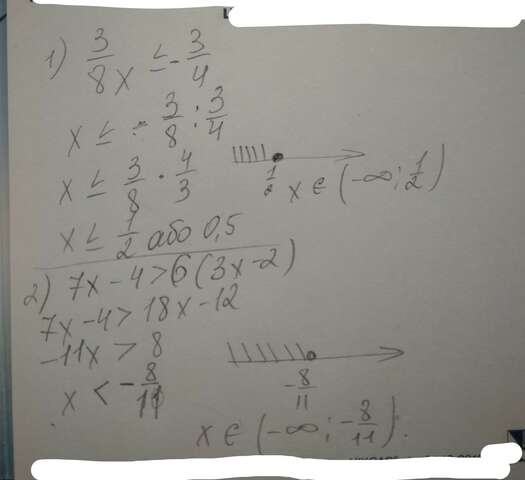 1) 3/8 x ≤ - 3/4
x ≤ - 3/8 : 3/4
x ≤ 3/8 · 4/3
x ≤ 1/2 або 0,5
1/2
x ∈ (-∞; 1/2)
2) 7x - 4 > 6(3x - 2)
7x - 4 > 18x - 12
-11x > 8
x < - 8/11
- 8/11
x ∈ (-∞; - 8/11).